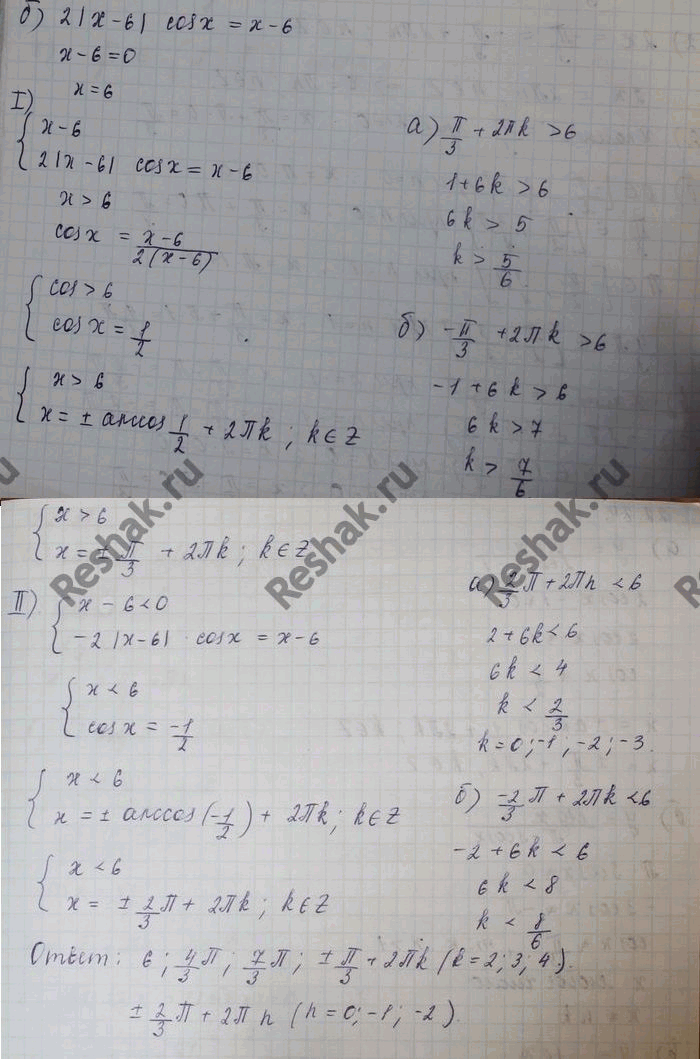 б) 2|x-6| cosx = x-6
x-6=0
x=6
I) { x-6
2|x-6| cosx = x-6
x > 6
cosx = x-6 / 2(x-6)
{ cos > 6
cosx = 1/2
{ x > 6
x = ± arccos 1/2 + 2πk ; k ∈ Z
а) π/3 + 2πk > 6
1+6k > 6
6k > 5
k > 5/6
б) -π/3 + 2πk > 6
-1+6k > 6
6k > 7
k > 7/6
{ x > 6
x = ± π/3 + 2πk ; k ∈ Z
II) { x - 6 < 0
-2|x-6| cosx = x-6
{ x < 6
cosx = -1/2
{ x < 6
x = ± arccos(-1/2) + 2πk ; k ∈ Z
{ x < 6
x = ± 2/3 π + 2πk ; k ∈ Z
а) 2/3 π + 2πn < 6
2+6k < 6
6k < 4
k < 2/3
k = 0 ; -1 ; -2 ; -3.
б) -2/3 π + 2πk < 6
-2+6k < 6
6k < 8
k < 8/6
Ответ: 6 ; 4/3 π ; 7/3 π ; ± π/3 + 2πk (k = 2 ; 3 ; 4).
± 2/3 π + 2πn (n = 0 ; -1 ; -2).
Reshak.ru
Reshak.ru
Reshak.ru
Reshak.ru